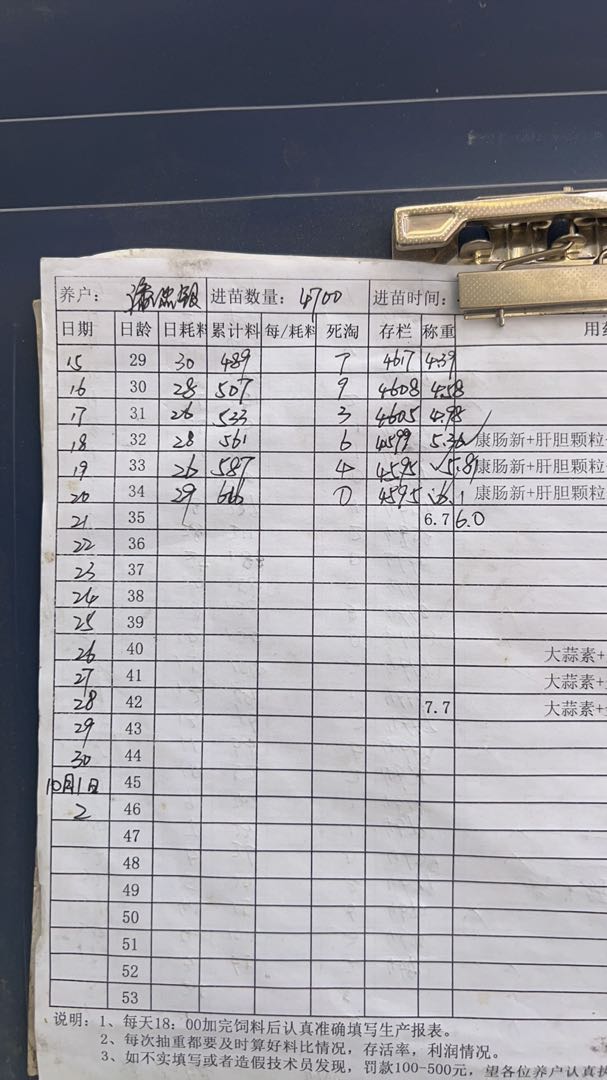 养户： 进苗数量：4700 进苗时间：
日期 日龄 日耗料 累计料 每/耗料 死淘 存栏 称重 用
15 29 30 489 7 4617 4.39
16 30 28 507 9 4608 4.58
17 31 26 533 3 4605 4.98
18 32 28 561 6 4599 5.36 康肠新+肝胆颗粒
19 33 26 587 4 4595 5.81 康肠新+肝胆颗粒
20 34 29 0 4595 6.1 康肠新+肝胆颗粒
21 35 6.7 6.0
22 36
23 37
24 38
25 39
26 40 大蒜素+
27 41 大蒜素+
28 42 7.7 大蒜素+
29 43
30 44
10月1日 45
2 46
47
48
49
50
51
52
53
说明：1、每天18：00加完饲料后认真准确填写生产报表。
2、每次抽重都要及时算好料比情况，存活率，利润情况。
3、如不实填写或者造假技术员发现，罚款100-500元，望各位养户认真执